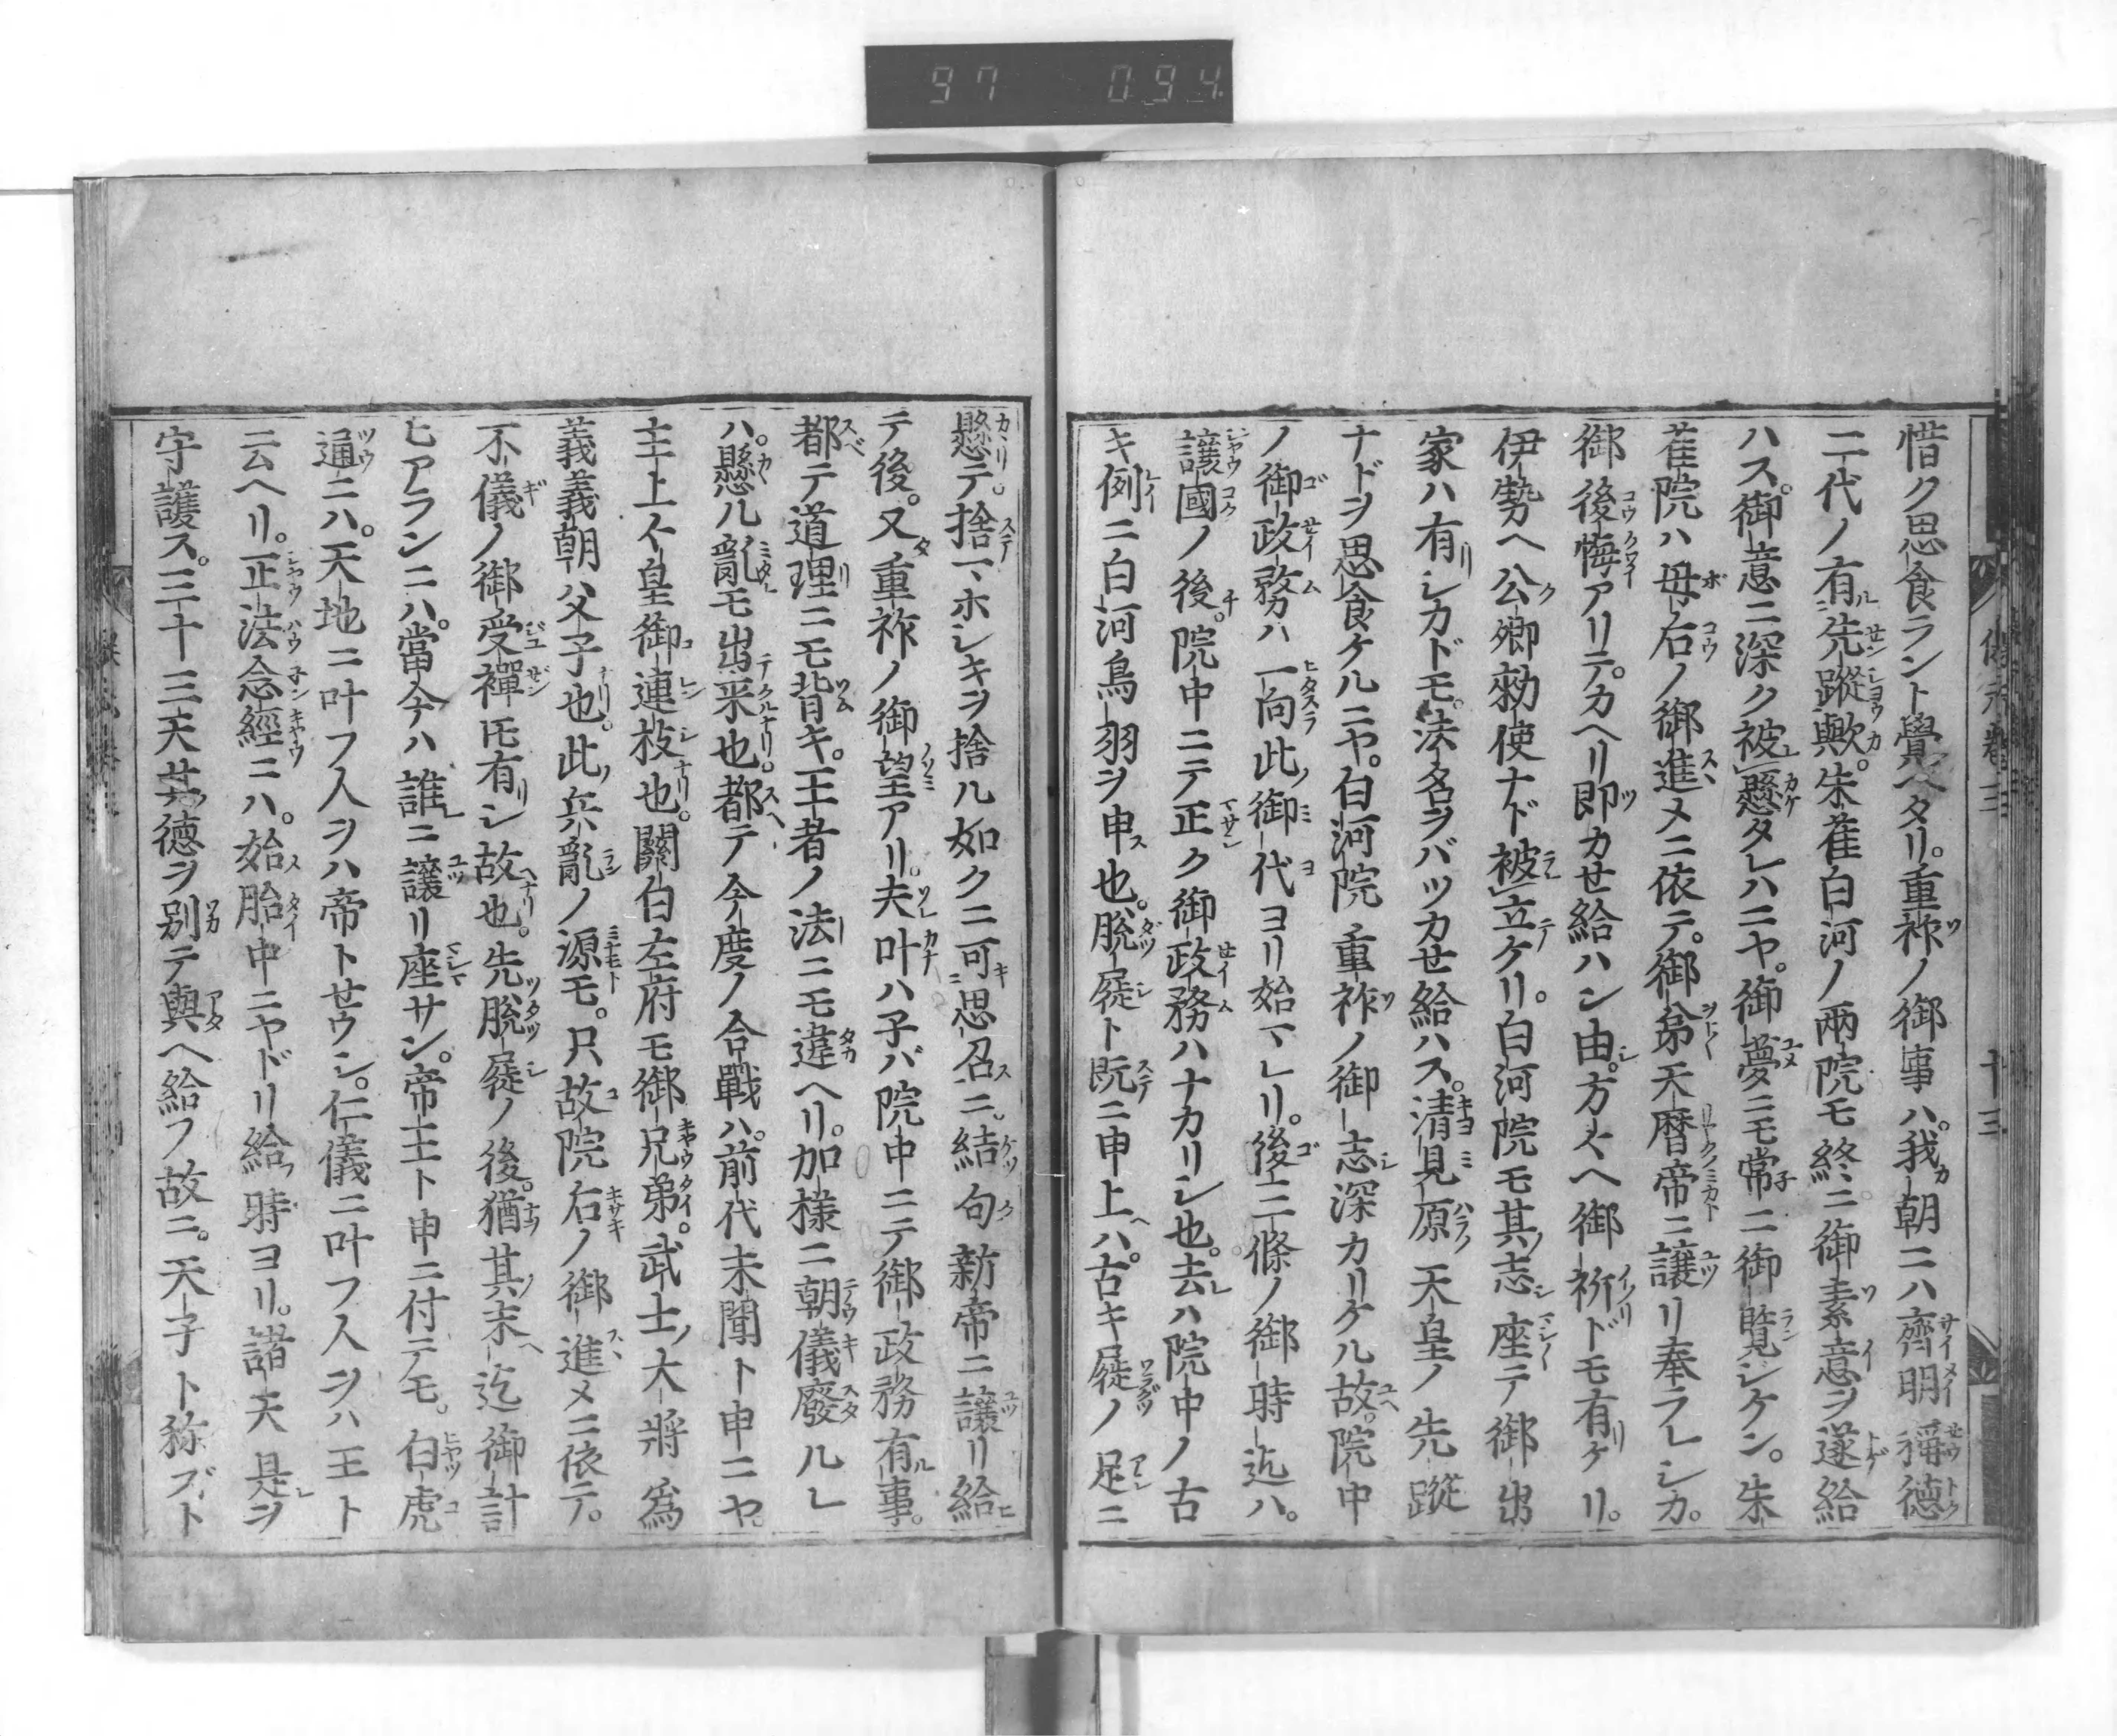 97 094
惜ク思食ラント覺ヘタリ。重祚ノ御事ハ。我朝ニハ齊明稱德
二代ノ有先蹤歟。朱雀白河ノ兩院モ終ニ御素意ヲ遂給
ハス。御意ニ深ク被懸タレハニヤ。御夢ニモ常ニ御覽シケン。朱
雀院ハ母后ノ御進メニ依テ。御弟天曆帝ニ讓リ奉ラレシカ。
御後悔アリテ。カヘリ即カせ給ハン由。方々ヘ御祈ドモ有ケリ。
伊勢ヘ公卿勅使ナド被立ケリ。白河院モ其志座テ御出
家ハ有シカドモ。法名ヲバツカせ給ハス。清見原天皇ノ先蹤
ナドヲ思食ケルニヤ。白河院重祚ノ御志深カリケル故。院中
ノ御政務ハ一向此御代ヨリ始マレリ。後三條ノ御時迄ハ。
讓國ノ後。院中ニテ正ク御政務ハナカリシ也。去ハ院中ノ古
キ例ニ白河鳥羽ヲ申也。脫屣ト既ニ申上ハ。古キ屣ノ足ニ
懸テ。捨マホシキヲ捨ル如クニ可思召ニ。結句新帝ニ讓リ給
テ後。又重祚ノ御望アリ。夫叶ハ子バ院中ニテ御政務有事。
都テ道理ニモ背キ。王者ノ法ニモ違ヘリ。加樣ニ朝儀廢ルレ
ハ。懸ル亂モ出來也。都テ今度ノ合戰ハ。前代未聞ト申ニヤ。
主上上皇御連枝也。關白左府モ御兄弟。武士ノ大將爲
義義朝ハ父子也。此兵亂ノ源モ。只故院后ノ御進メニ依テ。
不儀ノ御受禪𪜈有シ故也。先脫屣ノ後。猶其末迄御計
ヒアランニハ。當今ハ誰ニ讓リ座サン。帝王ト申ニ付テモ。白虎
通ニハ。天地ニ叶フ人ヲハ帝トせウシ。仁儀ニ叶フ人ヲハ王ト
云ヘリ。正法念經ニハ。始胎中ニヤドリ給フ時ヨリ。諸天是ヲ
守護ス。三十三天其德ヲ別テ與ヘ給フ故ニ。天子ト稱ズト